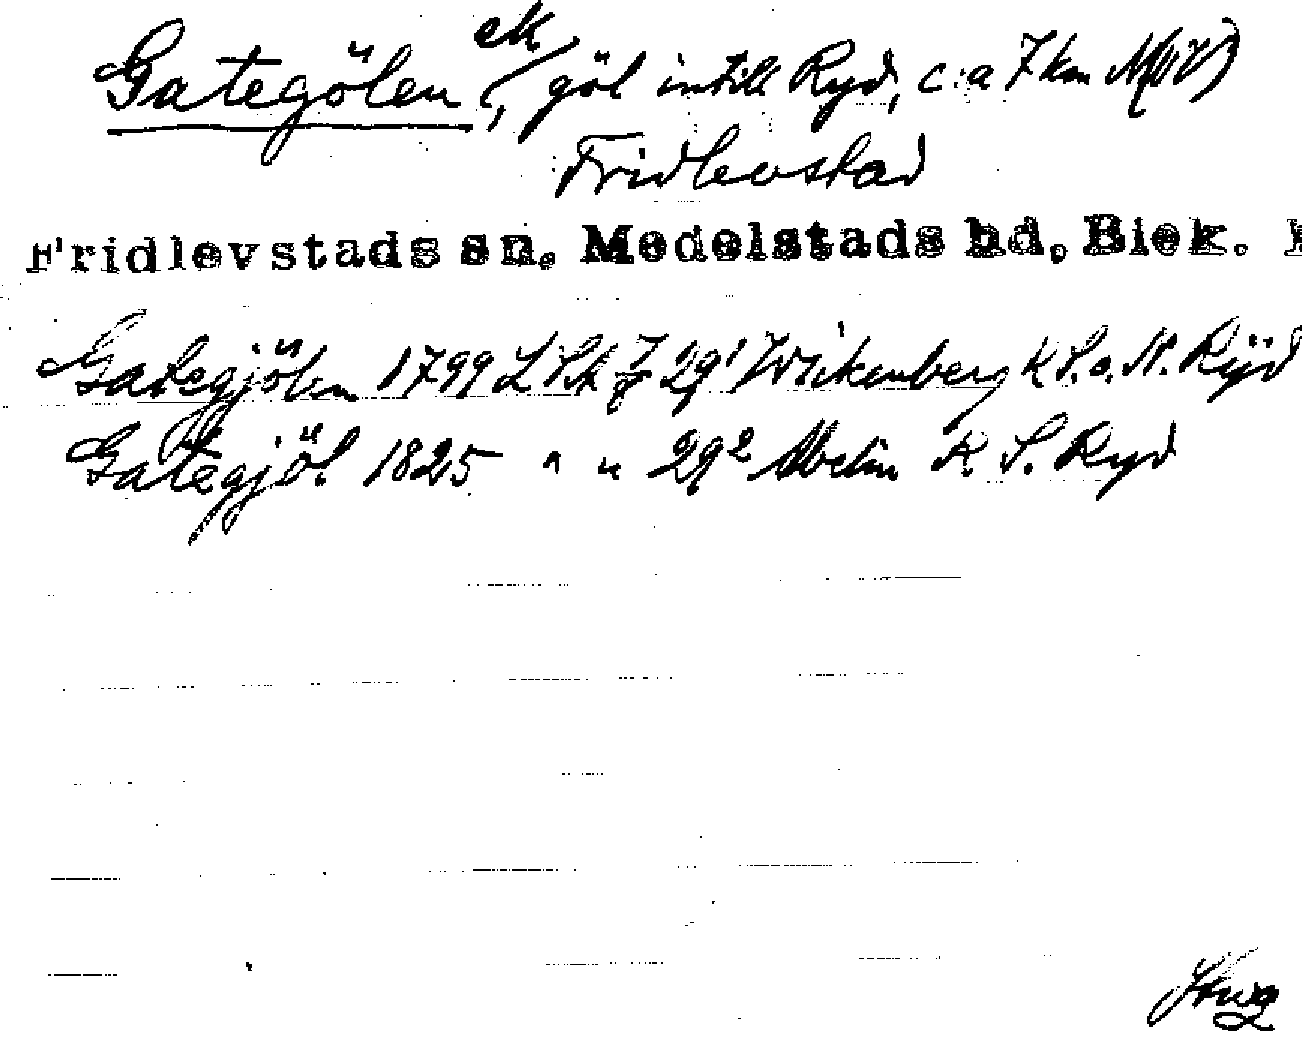 Gategölen, ek, göl intill Ryd, c:a 7 km N(til V)
Fridlevstad
Fridlevstads sn. Medelstads hd, Blek.
Gategjölen 1799 LSA F 29¹ Wikenberg K S. o. N. Rÿd
Gategjöl 1825 " " 29² Abelin K S. Ryd